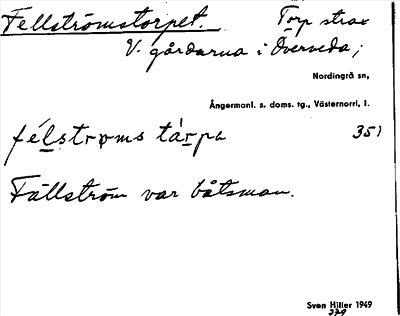 Fellströmstorpet. Torp strax
V. gårdarna i Överveda;
Nordingrå sn,
Ångermanl. s. doms. tg., Västernorrl. l.
félstrøms tárpa 351
Fällström var båtsman.
Sven Hiller 1949